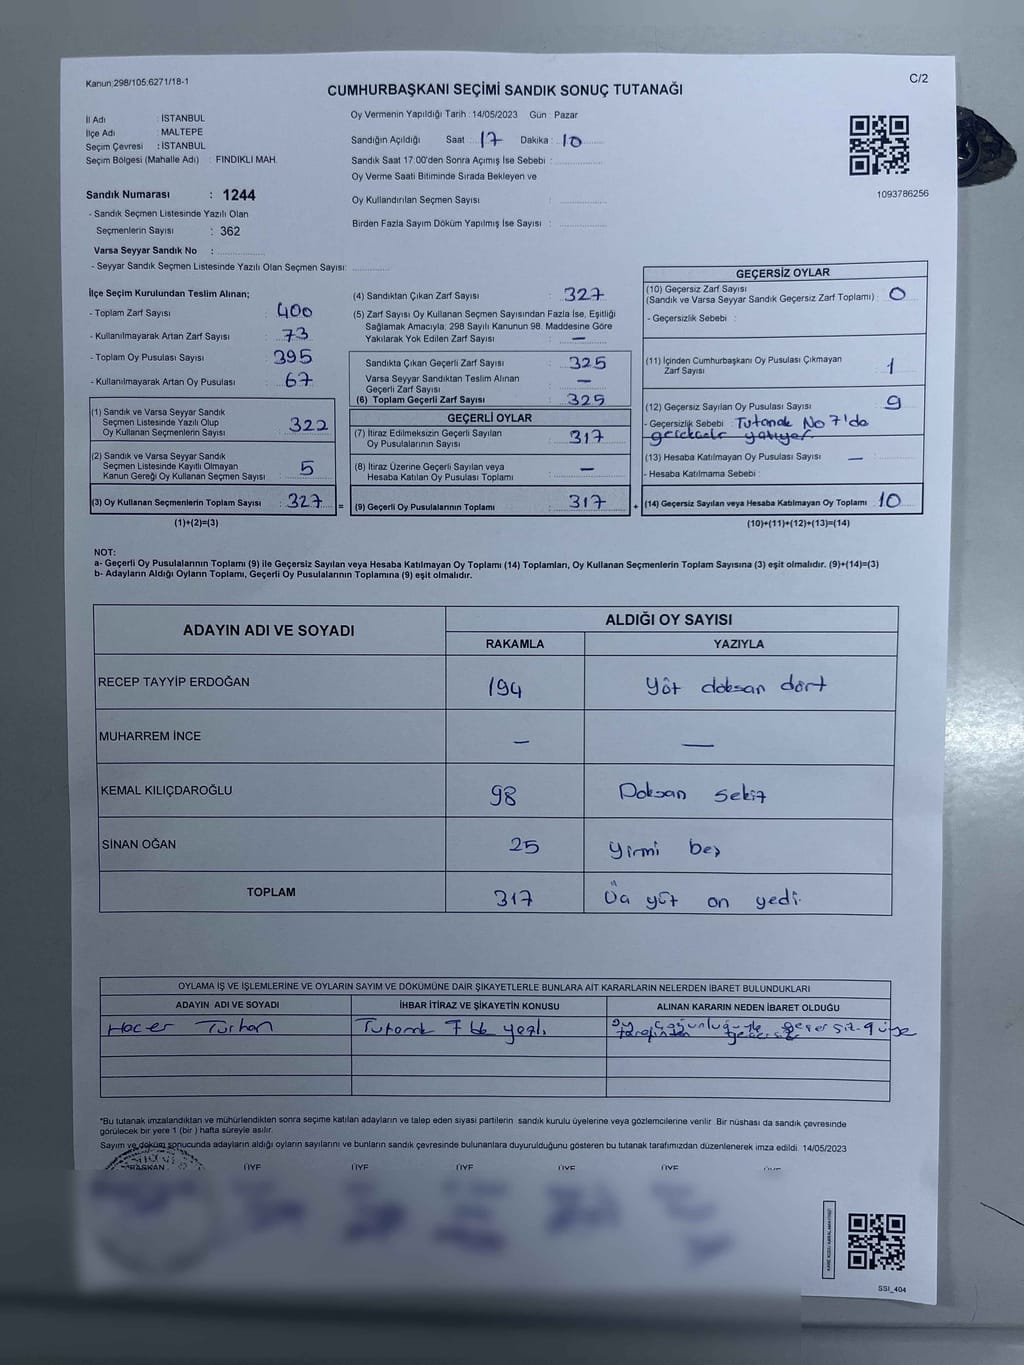 Kanun:298/105;6271/18-1
C/2
CUMHURBAŞKANI SEÇİMİ SANDIK SONUÇ TUTANAĞI
İl Adı : İSTANBUL
İlçe Adı : MALTEPE
Seçim Çevresi : İSTANBUL
Seçim Bölgesi (Mahalle Adı) : FINDIKLI MAH.
Sandık Numarası : 1244
- Sandık Seçmen Listesinde Yazılı Olan
Seçmenlerin Sayısı : 362
Varsa Seyyar Sandık No :
- Seyyar Sandık Seçmen Listesinde Yazılı Olan Seçmen Sayısı:
Oy Vermenin Yapıldığı Tarih : 14/05/2023 Gün : Pazar
Sandığın Açıldığı Saat : 17 Dakika : 10
Sandık Saat 17:00'den Sonra Açımış İse Sebebi :
Oy Verme Saati Bitiminde Sırada Bekleyen ve
Oy Kullandırılan Seçmen Sayısı :
Birden Fazla Sayım Döküm Yapılmış İse Sayısı :
1093786256
İlçe Seçim Kurulundan Teslim Alınan;
- Toplam Zarf Sayısı : 400
- Kullanılmayarak Artan Zarf Sayısı : 73
- Toplam Oy Pusulası Sayısı : 395
- Kullanılmayarak Artan Oy Pusulası : 67
(1) Sandık ve Varsa Seyyar Sandık
Seçmen Listesinde Yazılı Olup
Oy Kullanan Seçmenlerin Sayısı : 322
(2) Sandık ve Varsa Seyyar Sandık
Seçmen Listesinde Kayıtlı Olmayan
Kanun Gereği Oy Kullanan Seçmen Sayısı : 5
(3) Oy Kullanan Seçmenlerin Toplam Sayısı : 327 =
(1)+(2)=(3)
(4) Sandıktan Çıkan Zarf Sayısı : 327
(5) Zarf Sayısı Oy Kullanan Seçmen Sayısından Fazla İse, Eşitliği
Sağlamak Amacıyla; 298 Sayılı Kanunun 98. Maddesine Göre
Yakılarak Yok Edilen Zarf Sayısı : —
Sandıkta Çıkan Geçerli Zarf Sayısı : 325
Varsa Seyyar Sandıktan Teslim Alınan
Geçerli Zarf Sayısı : —
(6) Toplam Geçerli Zarf Sayısı : 325
GEÇERLİ OYLAR
(7) İtiraz Edilmeksizin Geçerli Sayılan
Oy Pusulalarının Sayısı : 317
(8) İtiraz Üzerine Geçerli Sayılan veya
Hesaba Katılan Oy Pusulası Toplamı : —
(9) Geçerli Oy Pusulalarının Toplamı : 317 +
GEÇERSİZ OYLAR
(10) Geçersiz Zarf Sayısı
(Sandık ve Varsa Seyyar Sandık Geçersiz Zarf Toplamı) : 0
- Geçersizlik Sebebi :
(11) İçinden Cumhurbaşkanı Oy Pusulası Çıkmayan
Zarf Sayısı : 1
(12) Geçersiz Sayılan Oy Pusulası Sayısı : 9
- Geçersizlik Sebebi : Tutanak No 7'de
yatıyor.
(13) Hesaba Katılmayan Oy Pusulası Sayısı : —
- Hesaba Katılmama Sebebi :
(14) Geçersiz Sayılan veya Hesaba Katılmayan Oy Toplamı : 10
(10)+(11)+(12)+(13)=(14)
NOT:
a- Geçerli Oy Pusulalarının Toplamı (9) ile Geçersiz Sayılan veya Hesaba Katılmayan Oy Toplamı (14) Toplamları, Oy Kullanan Seçmenlerin Toplam Sayısına (3) eşit olmalıdır. (9)+(14)=(3)
b- Adayların Aldığı Oyların Toplamı, Geçerli Oy Pusulalarının Toplamına (9) eşit olmalıdır.
ADAYIN ADI VE SOYADI
ALDIĞI OY SAYISI
RAKAMLA YAZIYLA
RECEP TAYYİP ERDOĞAN 194 Yüz doksan dört
MUHARREM İNCE — —
KEMAL KILIÇDAROĞLU 98 Doksan sekiz
SİNAN OĞAN 25 Yirmi beş
TOPLAM 317 Üç yüz on yedi.
OYLAMA İŞ VE İŞLEMLERİNE VE OYLARIN SAYIM VE DÖKÜMÜNE DAİR ŞİKAYETLERLE BUNLARA AİT KARARLARIN NELERDEN İBARET BULUNDUKLARI
ADAYIN ADI VE SOYADI İHBAR İTİRAZ VE ŞİKAYETİN KONUSU ALINAN KARARIN NEDEN İBARET OLDUĞU
Hacer Turhan Tutanak 7
Oy çoğunluğu ile geçersiz
tarafından
*Bu tutanak imzalandıktan ve mühürlendikten sonra seçime katılan adayların ve talep eden siyasi partilerin sandık kurulu üyelerine veya gözlemcilerine verilir. Bir nüshası da sandık çevresinde
görülecek bir yere 1 (bir ) hafta süreyle asılır.
Sayım ve döküm sonucunda adayların aldığı oyların sayılarını ve bunların sandık çevresinde bulunanlara duyurulduğunu gösteren bu tutanak tarafımızdan düzenlenerek imza edildi. 14/05/2023
BAŞKAN ÜYE ÜYE ÜYE ÜYE ÜYE ÜYE
SSI_404